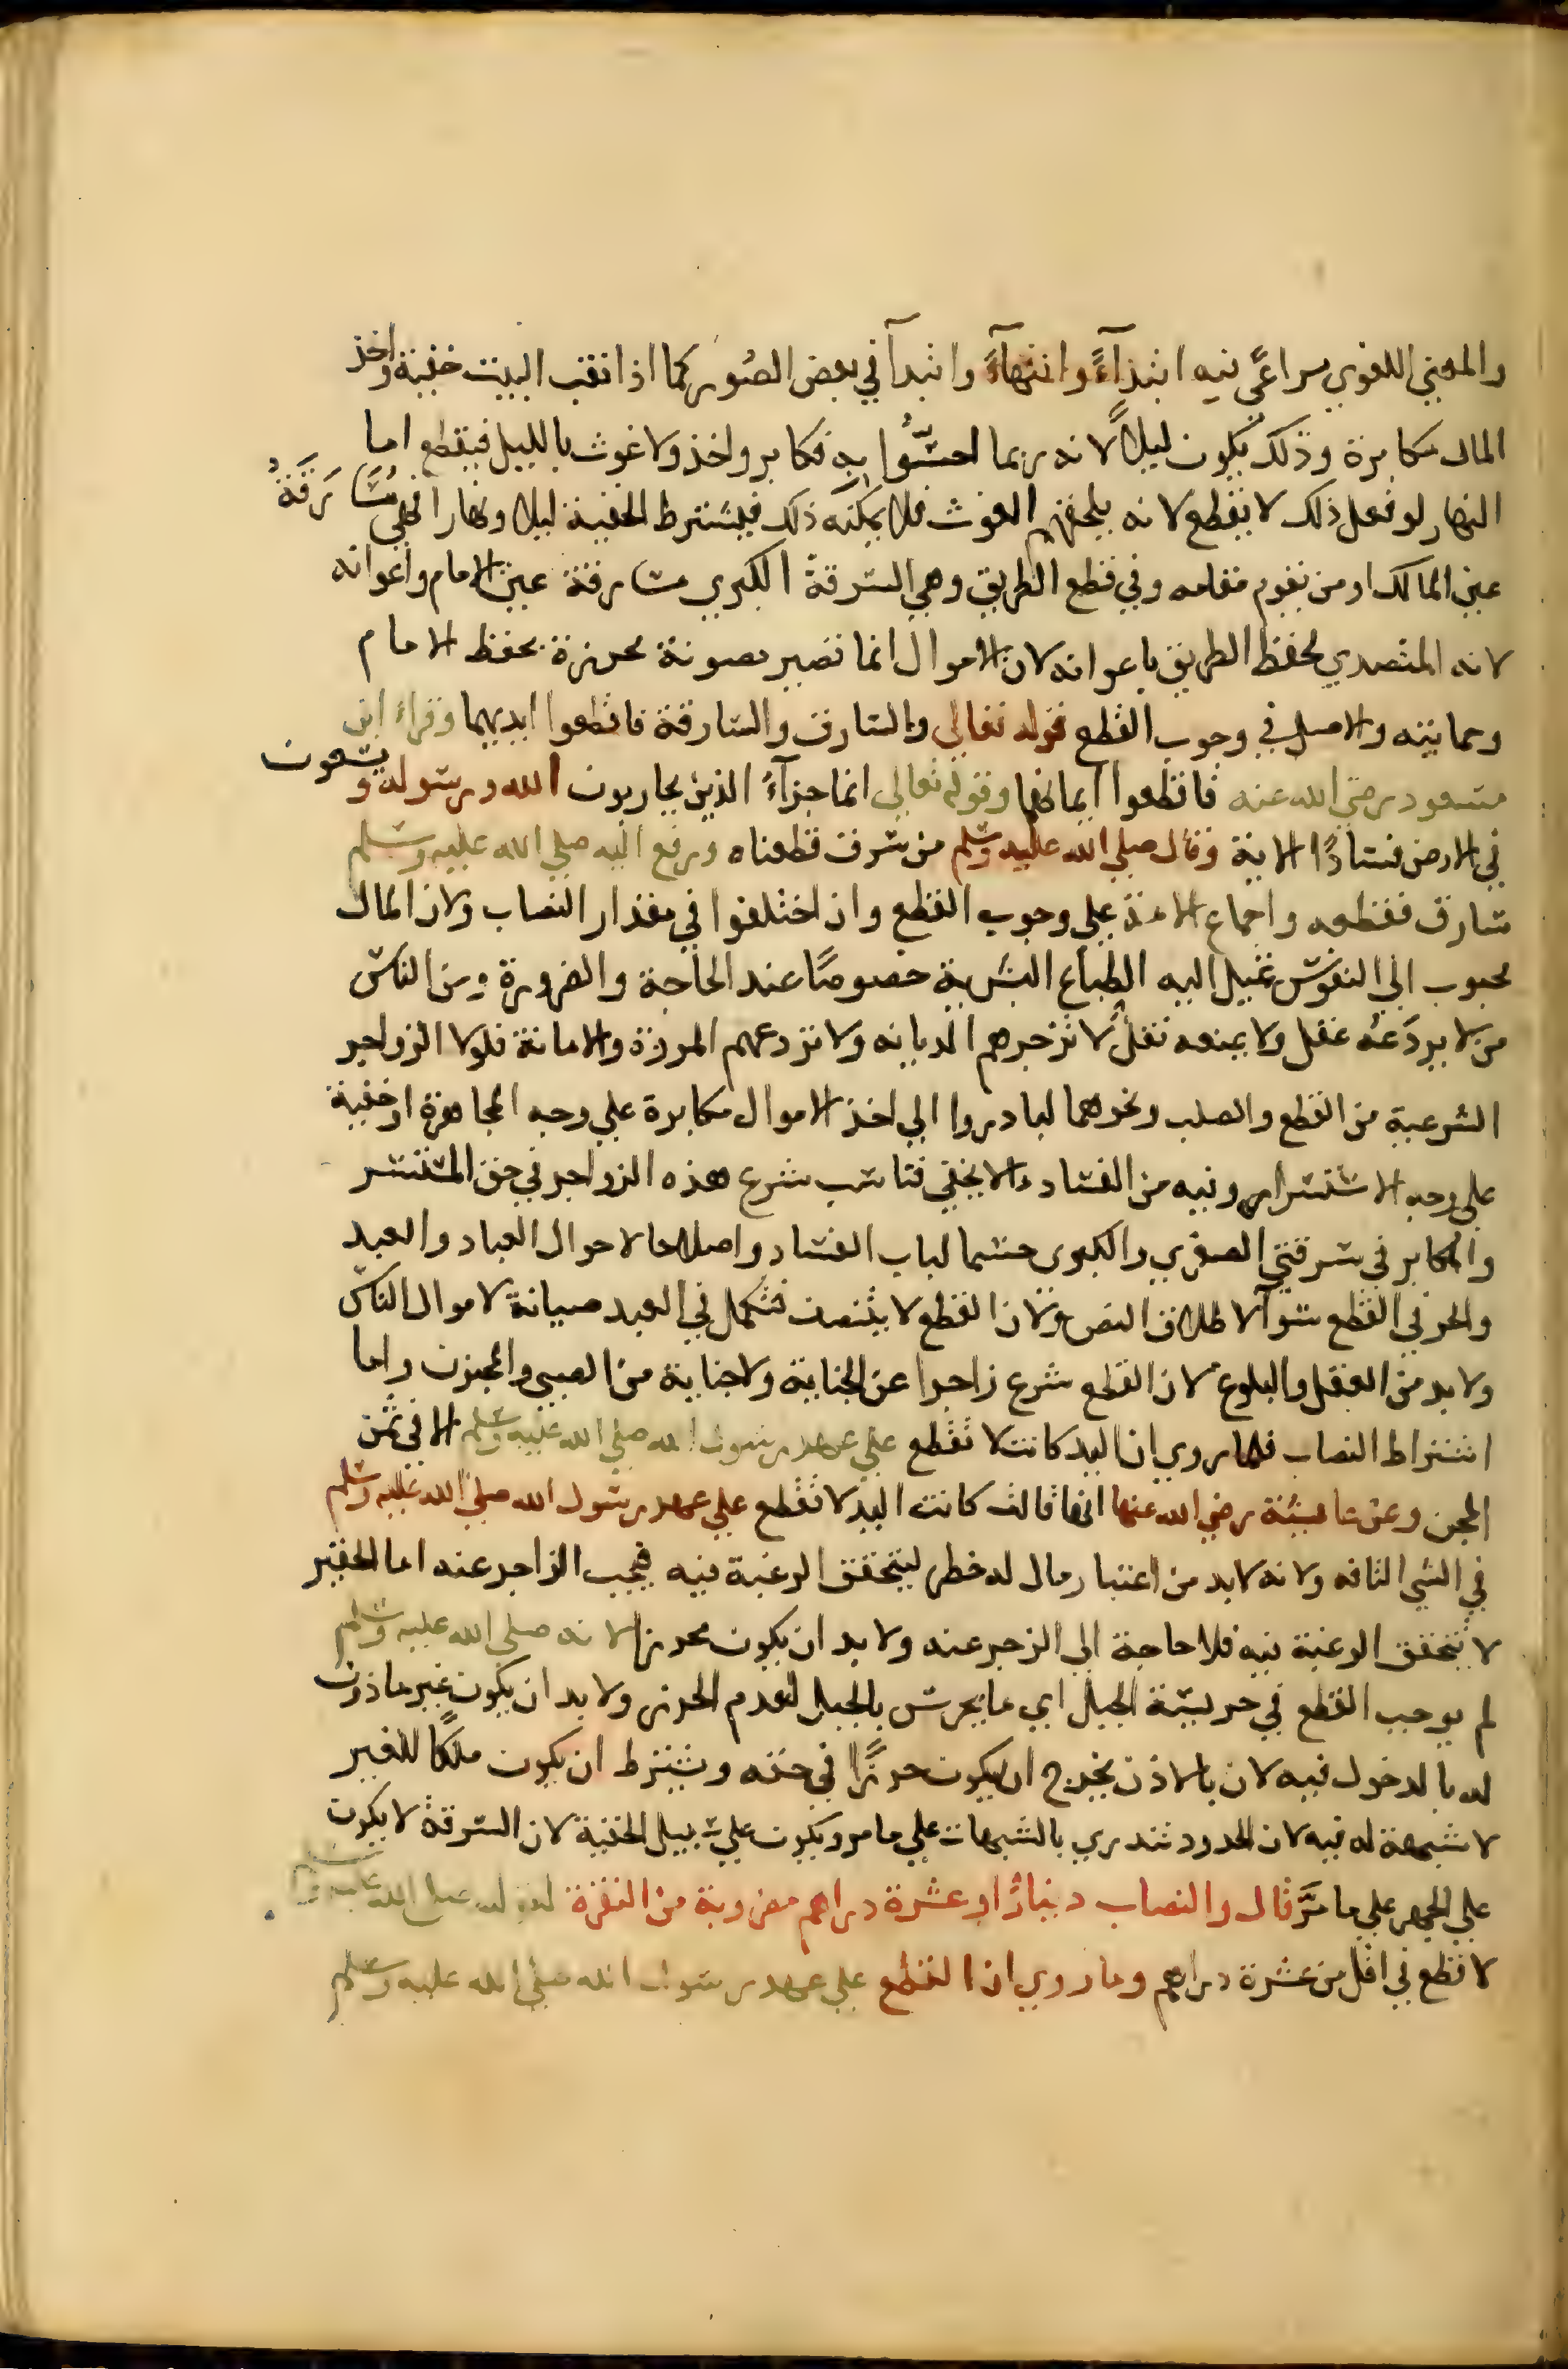 والمعنى اللغوي مراعًى فيه ابتدآءً وانتهآءً وابتدآ في بعض الصُور كما اذا نقب البيت خفية واخذ
المال مكابرة وذلك يكون ليلًا لانه ربما احسُّوا به فكابر واخذ ولا غوث بالليل فيقطع اما
النهار لو فعل ذلك لا يقطع لانه يلحقهم الغوث فلا يمكنه ذلك فيشترط الخفية ليلا ونهارا فهي مُسَارَقَةُ
عين المالك او من يقوم مقامه وفي قطع الطريق وهي السرقة الكبرى مسارقة عين الامام واعوانه
لانه المتصدي لحفظ الطريق باعوانه لان الاموال انما تصير مصونة محرزة بحفظ الامام
وحمايته والاصل في وجوب القطع قوله تعالى والسارق والسارقة فاقطعوا ايديهما وقراءة ابن
مسعود رضي الله عنه فاقطعوا ايمانهما وقوله تعالى انما جزآءُ الذين يحاربون الله ورسوله ويسعون
في الارض فسادًا الاية وقال صلى الله عليه وسلم من سرق قطعناه ورفع اليه صلى الله عليه وسلم
سارق فقطعه واجماع الامة على وجوب القطع وان اختلفوا في مقدار النصاب ولان المال
محبوب الى النفوس تميل اليه الطباع البشرية خصوصًا عند الحاجة والضرورة ومن الناس
من لا يردعه عقل ولا يمنعه نقل لا تزجرهم الديانه ولا تردعهم المروة والامانة فلولا الزواجر
الشرعية من القطع والصلب ونحوهما لبادروا الى اخذ الاموال مكابرة على وجه المجاهرة او خفية
على وجه الاستسرار وفيه من الفساد ما لا يخفى فناسب شرع هذه الزواجر في حق المستسر
والمكابر في سرقتي الصغرى والكبرى حسما لباب الفساد واصلاحا لاحوال العباد والعبد
والحر في القطع سوآ لاطلاق النص ولان القطع لا يتنصف فتكمل في العبد صيانة لاموال الناس
ولا بد من العقل والبلوغ لان القطع شرع زاجرا عن الجناية ولا جناية من الصبي والمجنون واما
اشتراط النصاب فلما روي ان اليد كانت لا تقطع على عهد رسول الله صلى الله عليه وسلم الا في ثمن
المجن وعن عايشة رضي الله عنها انها قالت كانت اليد لا تقطع على عهد رسول الله صلى الله عليه وسلم
في الشي التافه ولانه لا بد من اعتبار مال له خطر ليتحقق الرغبة فيه فيجب الزاجر عنه اما الحقير
لا تتحقق الرغبة فيه فلا حاجة الى الزجر عنه ولا بد ان يكون محرزا لانه صلى الله عليه وسلم
لم يوجب القطع في حريسة الجبل اي ما يحرس بالجبل لعدم الحرز ولا بد ان يكون غير ماذون
له بالدخول فيه لان بالاذن يخرج ان يكون حرزًا في حقه ويشترط ان يكون ملكًا للغير
لا شبهة له فيه لان الحدود تندري بالشبهات على ما مر ويكون على سبيل الخفية لان السرقة لا يكون
على الجهر على ما مرَّ قال والنصاب دينارًا او عشرة دراهم مضروبة من النقرة لقوله صلى الله عليه وسلم
لا قطع في اقل من عشرة دراهم وما روي ان القطع على عهد رسول الله صلى الله عليه وسلم